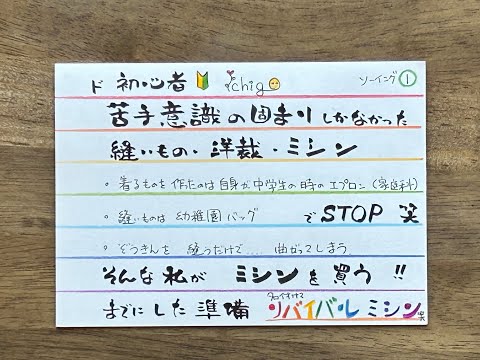 ド 初心者 ichigo ソーイング①
苦手意識の固まりしかなかった
縫いもの・洋裁・ミシン
・着るものを作たのは自身が中学生の時のエプロン（家庭科）
・縫いものは 幼稚園バッグ でSTOP 笑
・ぞうきんを 縫うだけで…. 曲がってしまう
そんな私が ミシンを買う !!
までにした準備 名付けて リバイバルミシン 笑